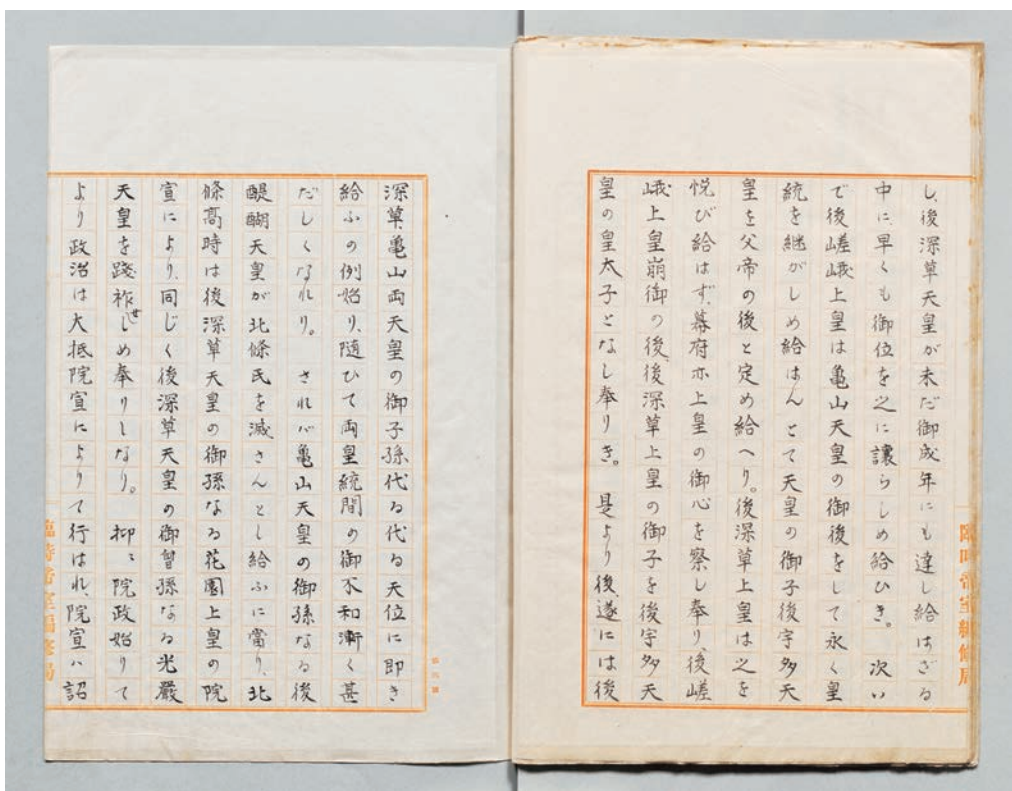 し、後深草天皇が未だ御成年にも達し給はざる
中に、早くも御位を之に譲らしめ給ひき。 次い
で後嵯峨上皇は亀山天皇の御後をして永く皇
統を継がしめ給はんとて天皇の御子後宇多天
皇を父帝の後と定め給へり。後深草上皇は之を
悦び給はず、幕府亦上皇の御心を察し奉り、後嵯
峨上皇崩御の後後深草上皇の御子を後宇多天
皇の皇太子となし奉りき。 是より後、遂には後
臨時帝室編修局
深草、亀山両天皇の御子孫代る代る天位に即き
給ふの例始り、随ひて両皇統間の御不和漸く甚
だしくなれり。 されば亀山天皇の御孫なる後
醍醐天皇が北條氏を滅さんとし給ふに當り、北
條高時は後深草天皇の御孫なる花園上皇の院
宣により、同じく後深草天皇の御曾孫なる光嚴
天皇を践祚せしめ奉りしなり。 抑〻院政始りて
より政治は大抵院宣によりて行はれ、院宣ハ詔
臨時帝室編修局